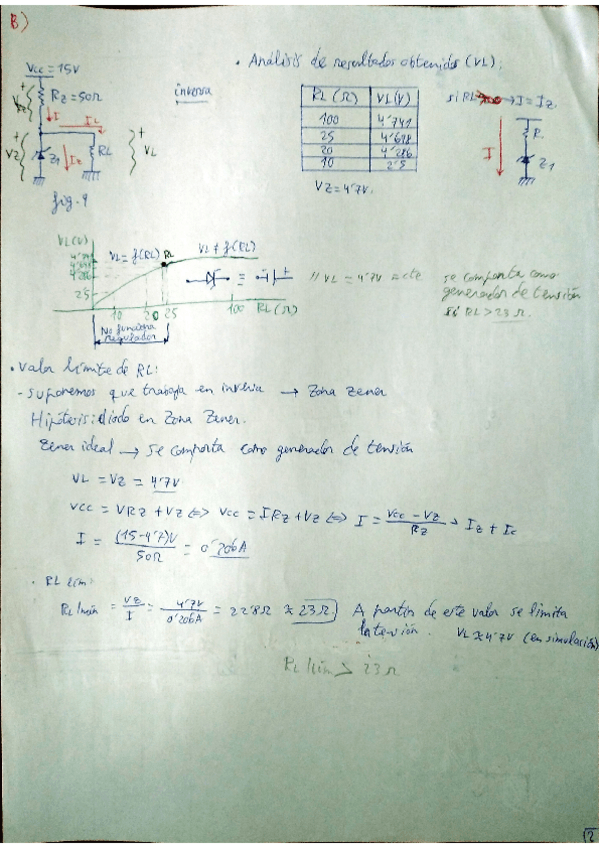 B)
• Análisis de resultados obtenidos (VL):
Vcc = 15V
RZ = 50Ω
inversa
I
IL
VZ
Z1
IZ
RL
VL
fig. 1
RL (Ω) VL(V)
100 4'741
25 4'698
20 4'286
10 2'5
VZ = 4'7V.
si RL → I = IZ.
R.
I
Z1
VL(V)
4'698
4'286
2'5
VL = f(RL)
RL
VL ≠ f(RL)
10 20 25 100 RL (Ω)
No funciona
regulador
// VL = 4'7V = cte
se comporta como
generador de tensión
si RL > 23 Ω.
• Valor límite de RL:
- Suponemos que trabaja en inversa → Zona Zener
Hipótesis: diodo en Zona Zener.
Zéner ideal → se comporta como generador de tensión
VL = VZ = 4'7V
Vcc = VRZ + VZ ⇔ Vcc = I RZ + VZ ⇔ I = (Vcc - VZ) / RZ → IZ + IL
I = (15 - 4'7)V / 50Ω = 0'206A
• RL lím:
RL mín = VZ / I = 4'7V / 0'206A = 22'8Ω ≈ 23Ω A partir de este valor se limita
la tensión. VL ≈ 4'7V (en simulación)
RL lím > 23 Ω
12